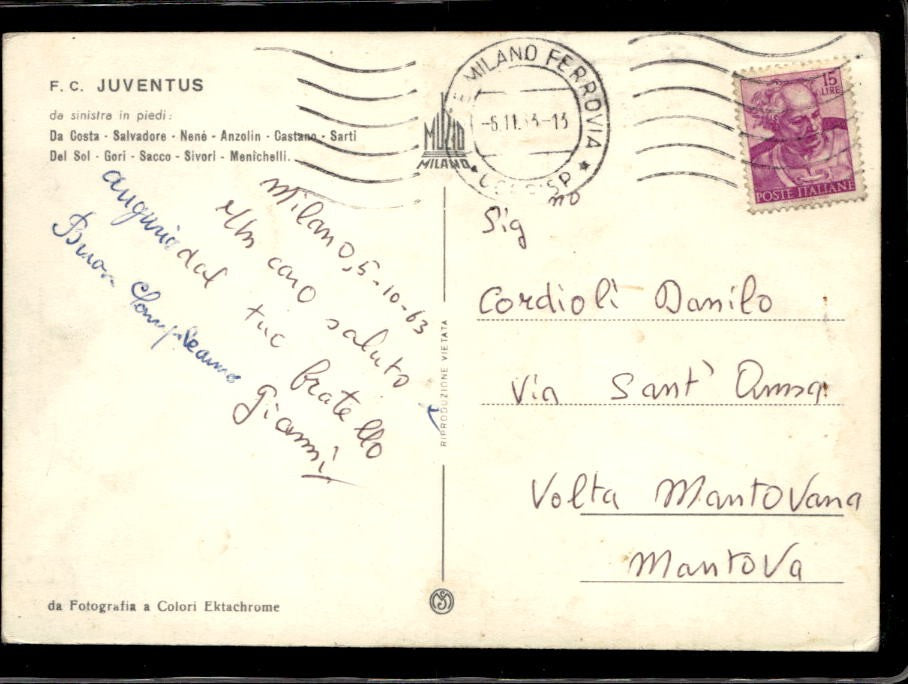 F. C. JUVENTUS
da sinistra in piedi:
Da Costa - Salvadore - Nenè - Anzolin - Castano - Sarti
Del Sol - Gori - Sacco - Sivori - Menichelli.
Milano, 5-10-63
Un caro saluto
dal tuo fratello
Gianni
auguri
Buon Compleanno
da Fotografia a Colori Ektachrome
RIPRODUZIONE VIETATA
MILANO FERROVIA
-6.11.63-13
MILANO
15
LIRE
POSTE ITALIANE
Sig no
Cordioli Danilo
Via Sant' Anna
Volta Mantovana
Mantova